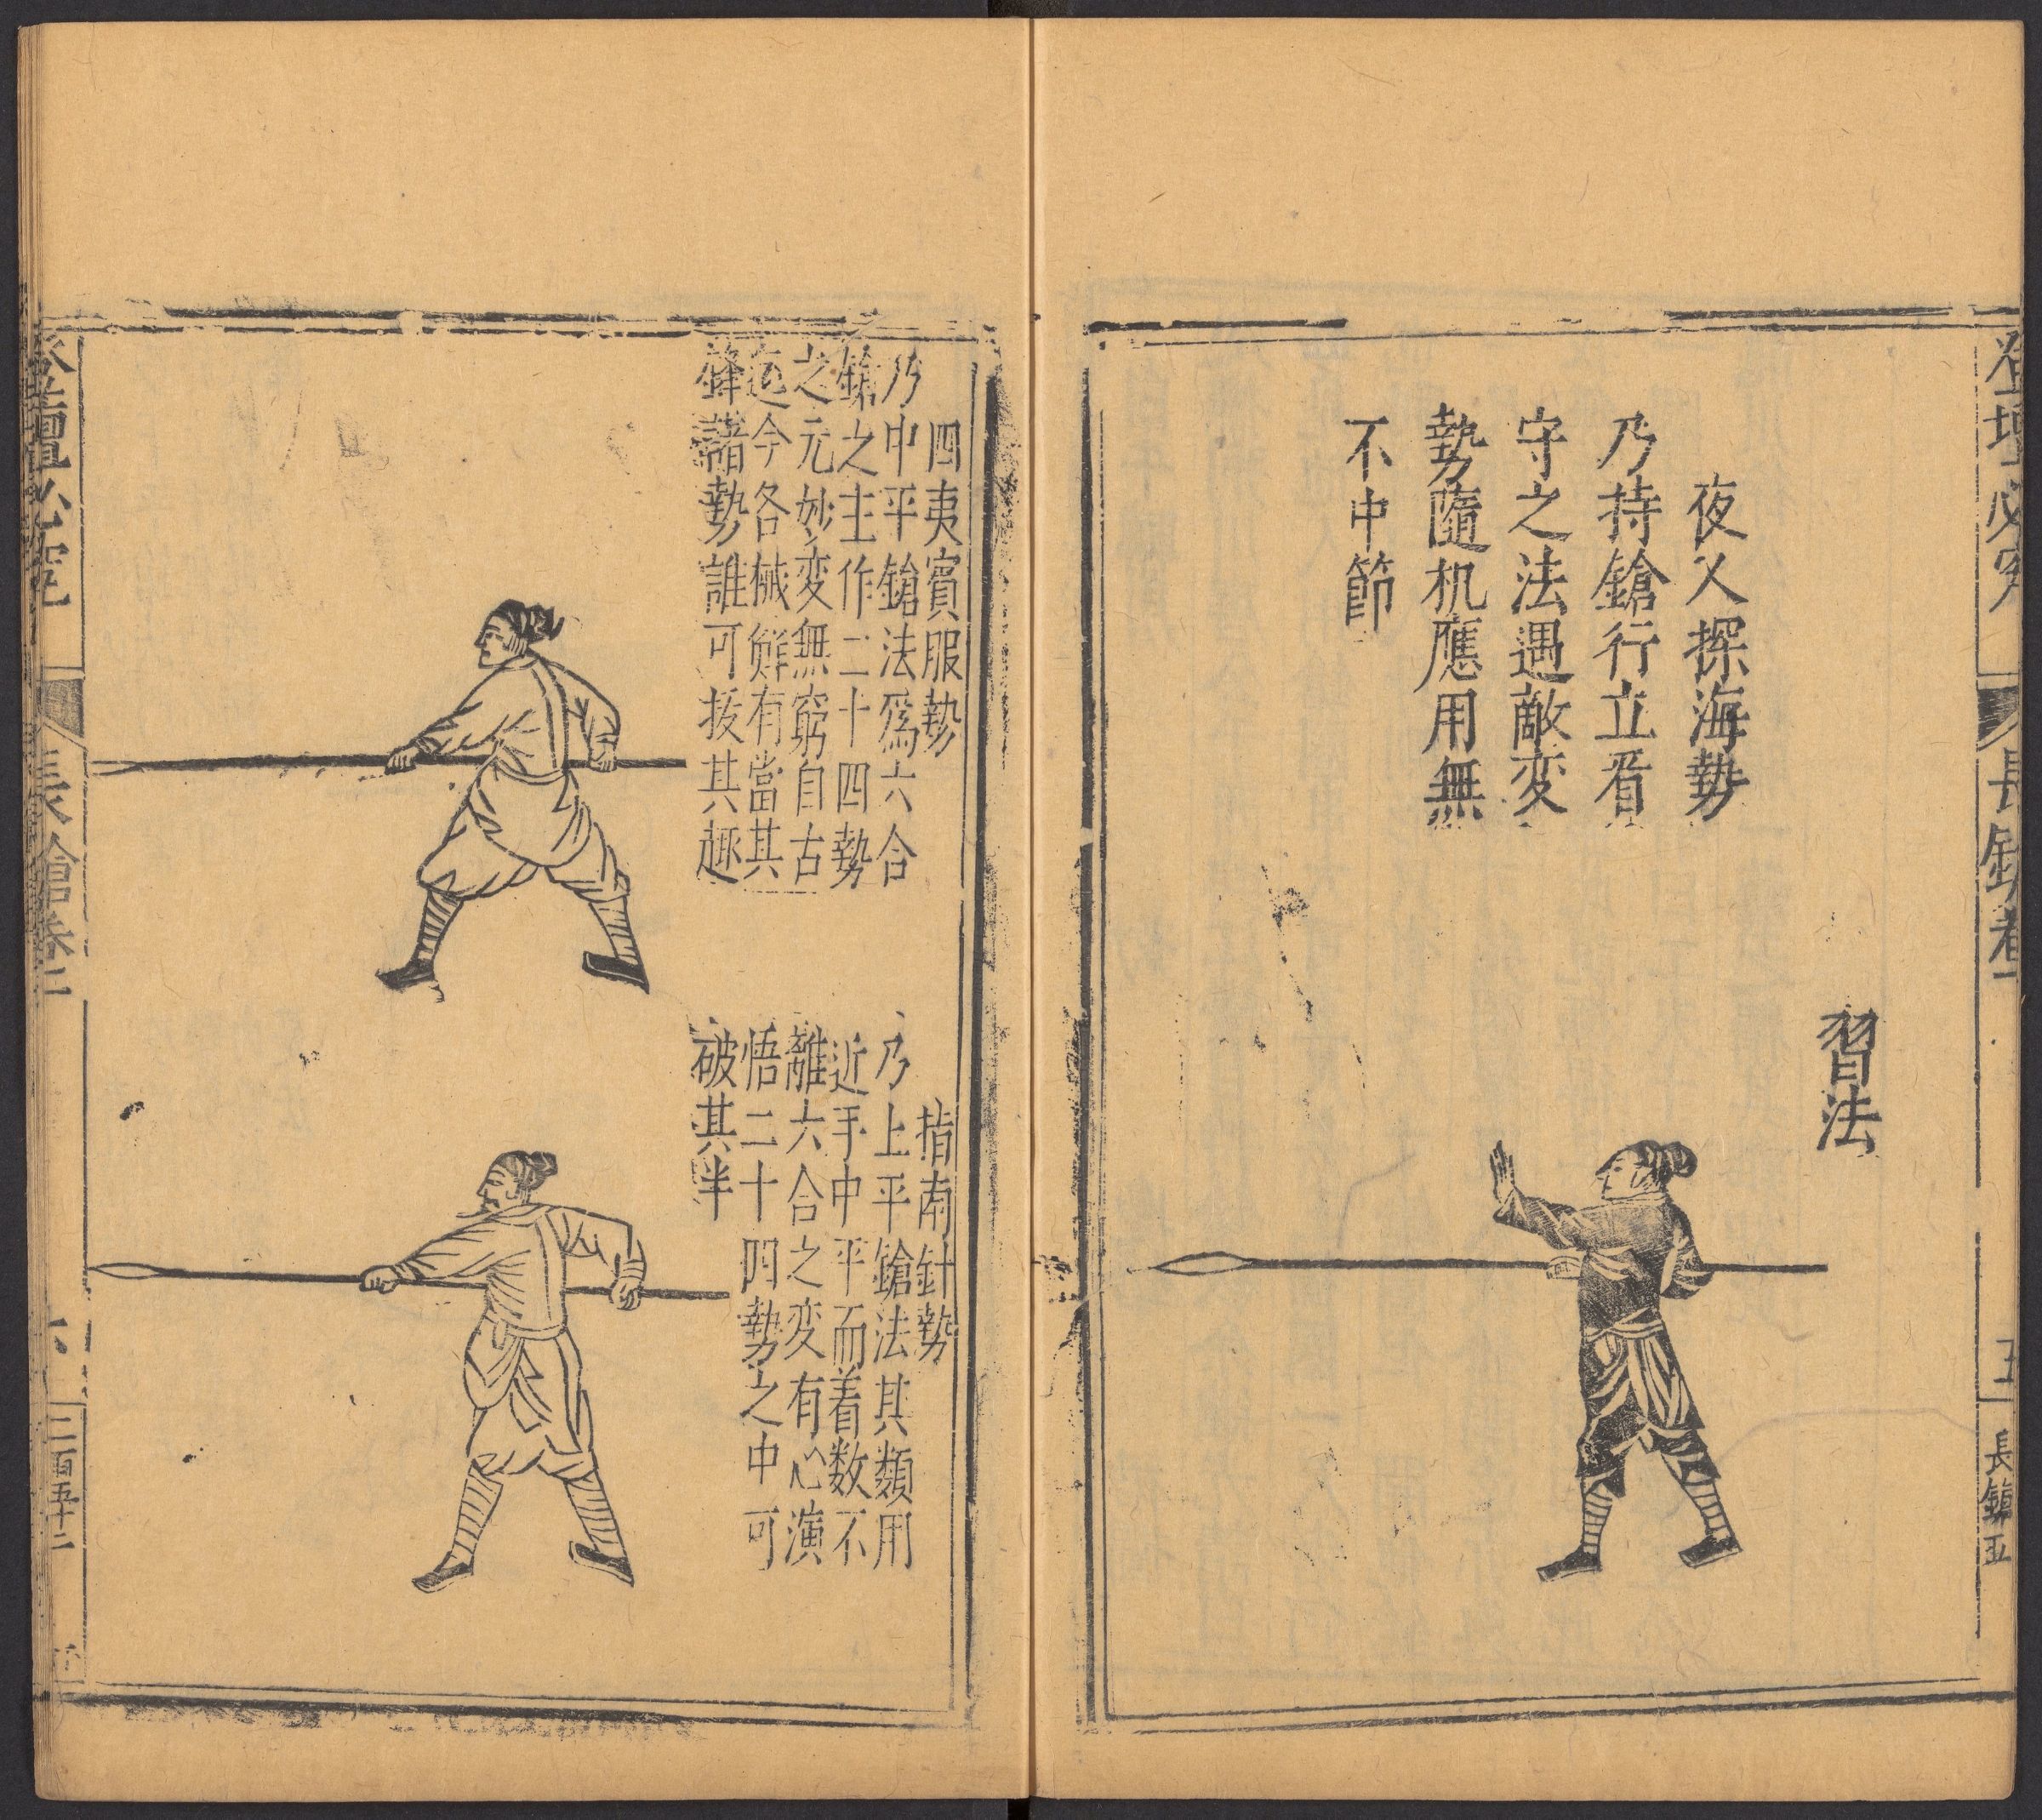 登壇必究
長鎗卷一
五
長鎗五
習法
夜乂探海勢
乃持鎗行立看
守之法遇敵变
勢隨机應用無
不中節
四夷賓服勢
乃中平鎗法爲六合
鎗之主作二十四勢
之元妙变無窮自古
迄今各械鮮有當其
鋒諸勢誰可拔其趣
指南針勢
乃上平鎗法其類用
近手中平而着数不
離六合之变有心演
悟二十四勢之中可
破其半
登壇必究
長鎗卷一
六
二百五十二